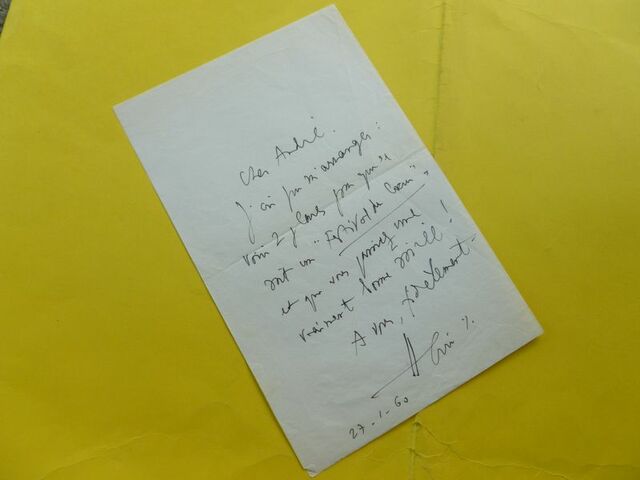 Cher André.
J'ai pu m'arranger :
voici 2 places pour que ce
soit un "Festival du Cœur",
et que vous passiez une
vraiment bonne soirée !
A vous, fidèlement -
27-1-60